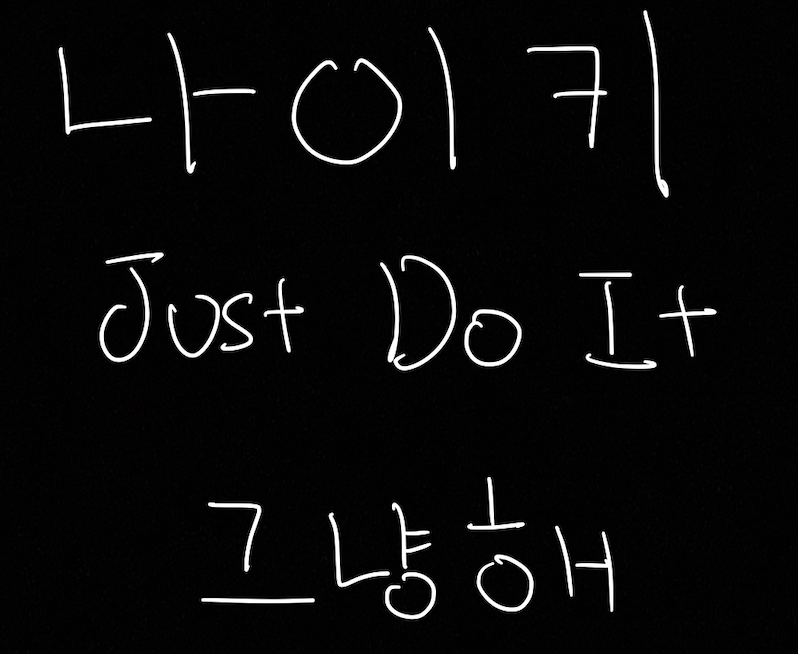 나이키
Just Do It
그냥해